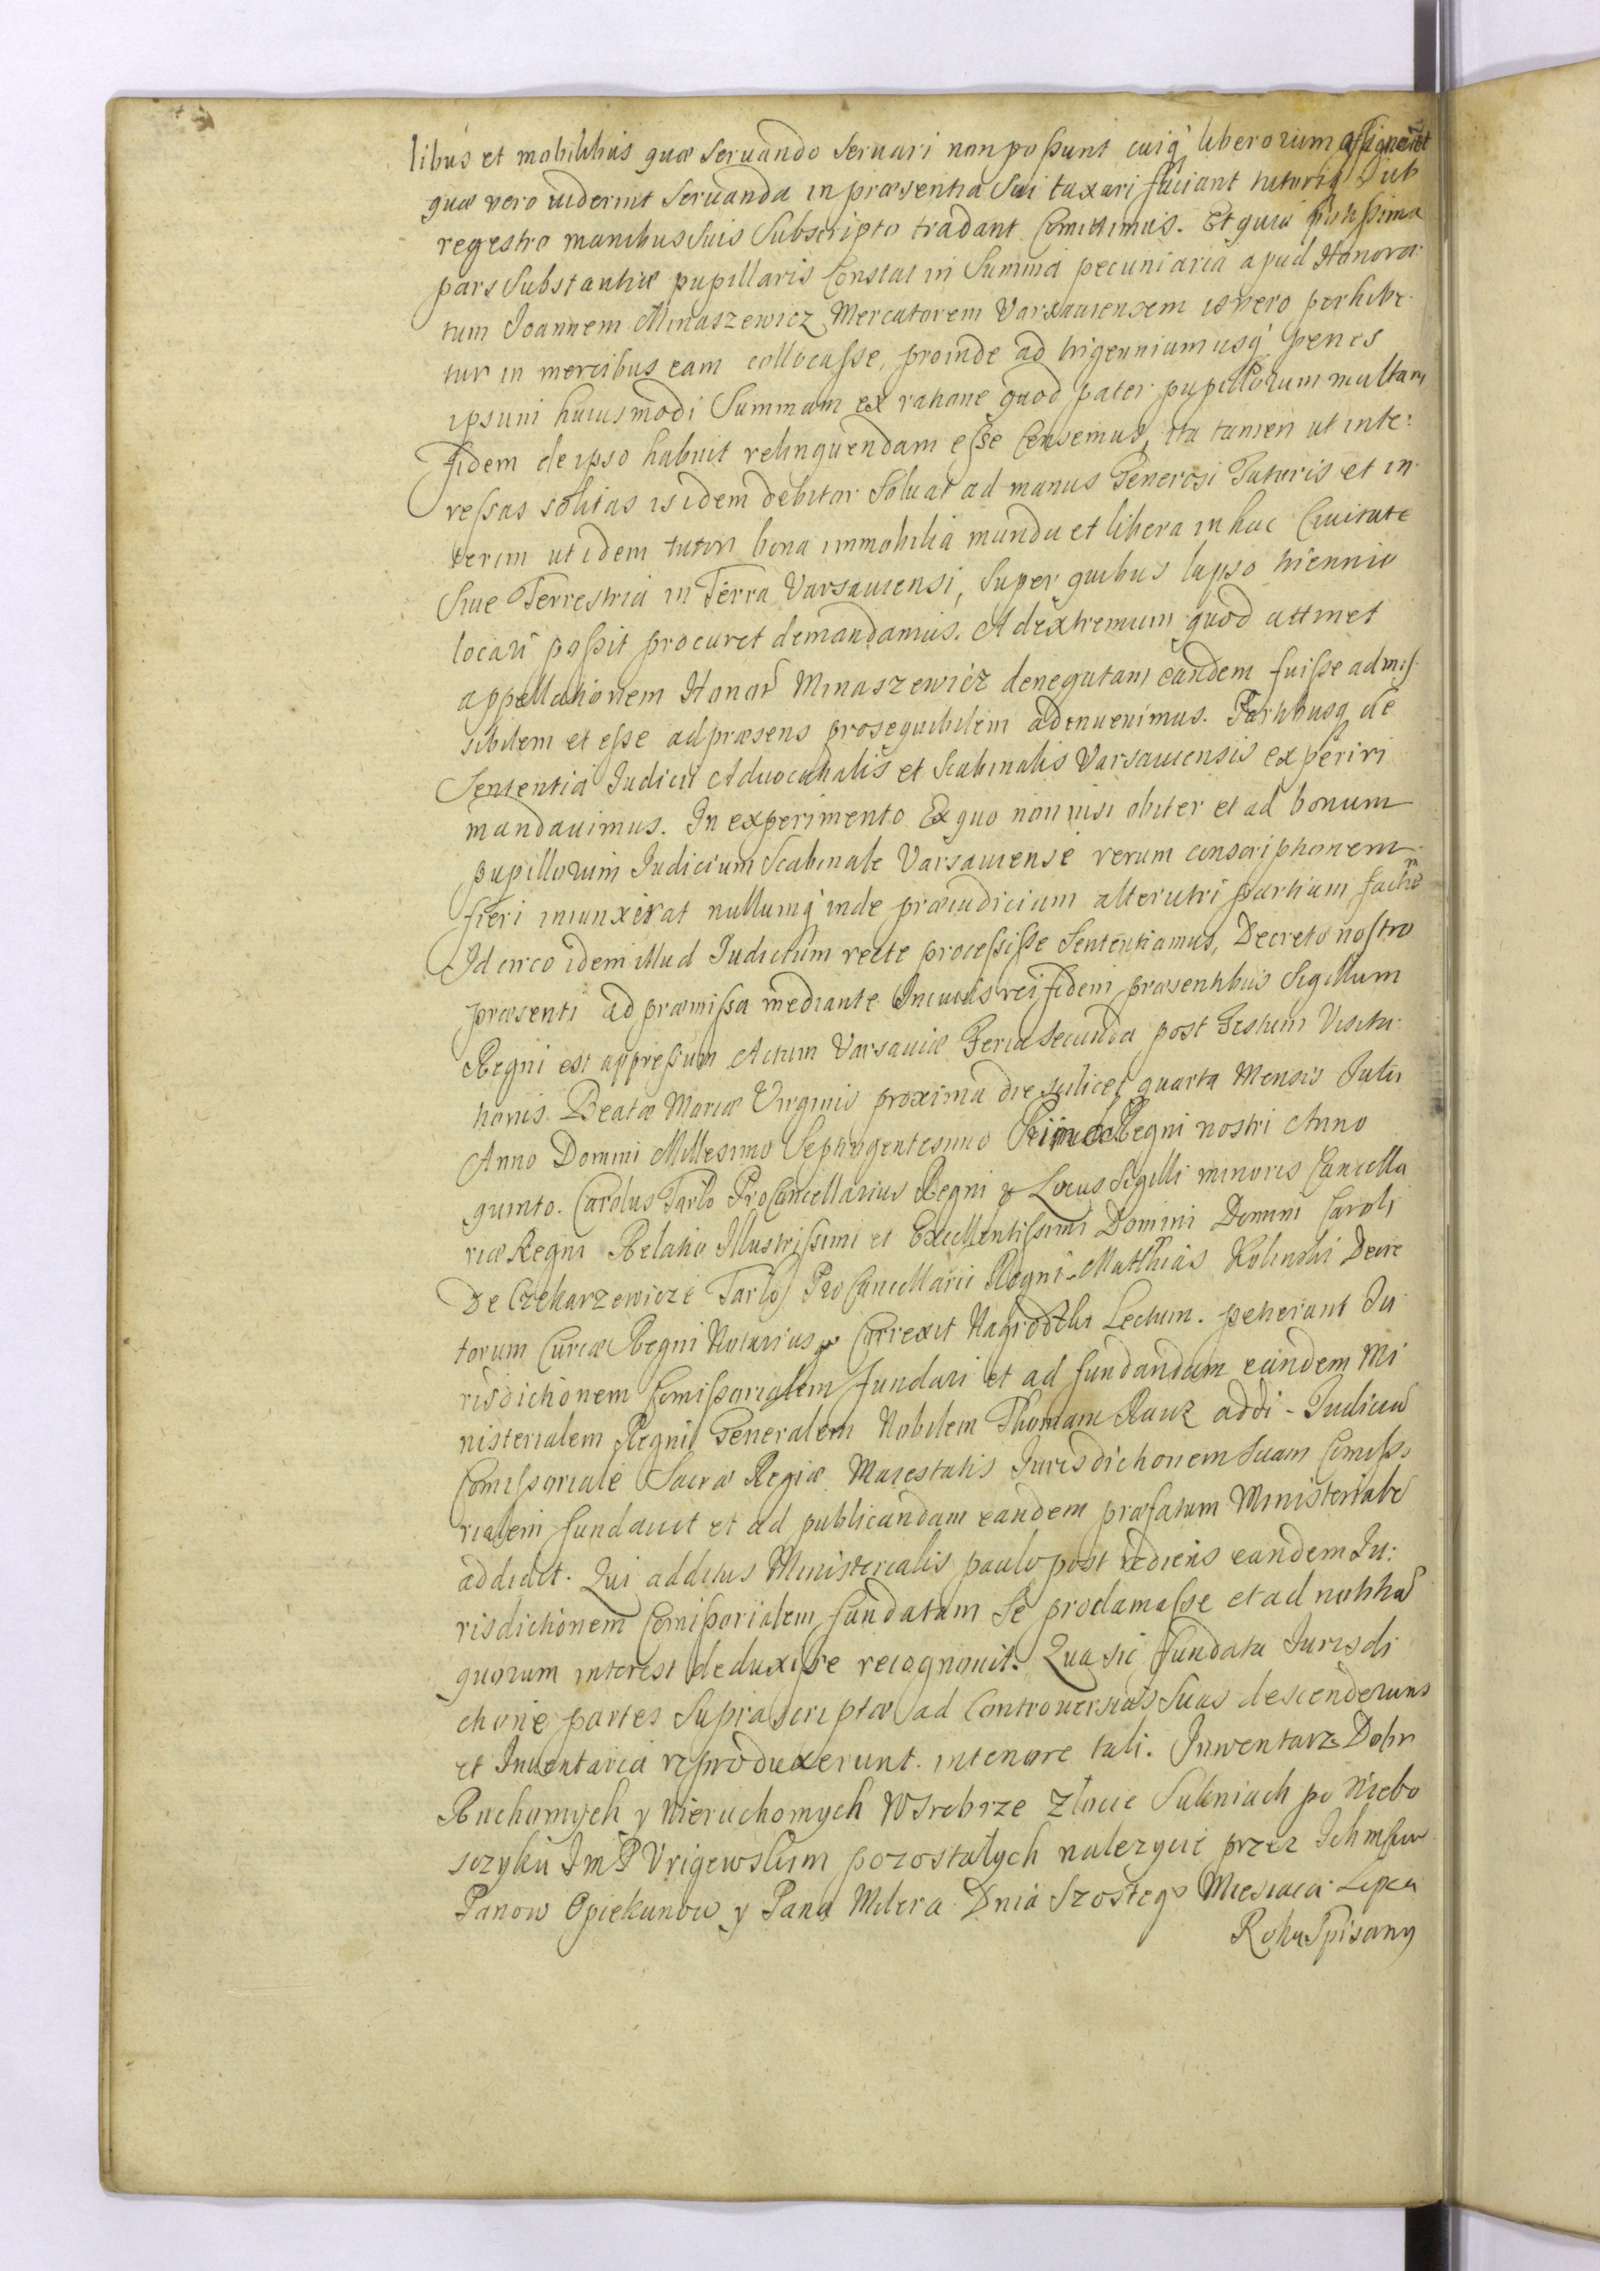 libus et mobilibus quæ servando servari non possunt cuiq liberorum assignent
quæ vero viderint servanda in præsentia sui taxari faciant tutoriq sub
regestro manibus suis subscripto tradant Comittimus. Et quia potissima
pars substantiæ pupillaris Constat in Summa pecuniaria apud Honora:
tum Joannem Minaszewicz Mercatorem Varsauiensem is vero perhibe:
tur in mercibus eam collocasse, proinde ad trigennium usq penes
ipsum huiusmodi Summam ex ratione quod pater pupillorum multam
fidem de ipso habuit relinquendam esse Censemus, ita tamen ut inte:
ressas solitas is idem debitor soluat ad manus Generosi Tutoris et in:
terim ut idem tutor bona immobilia munda et libera in hac Ciuitate
Siue Terrestria in Terra Varsauiensi, super quibus lapso triennio
locari possit procuret demandamus. Ad extremum quod attinet
appellationem Honor Minaszewicz denegatam eandem fuisse admis:
sibilem et esse ad præsens prosequibilem adinuenimus. Partibusq de
Sententia Judicii Aduocatialis et Scabinalis Varsauiensis experiri
mandauimus. In experimento Ex quo non nisi obiter et ad bonum
pupillorum Judicium Scabinale Varsauiense rerum conscriptionem
fieri iniunxerat nullumq inde præiudicium alterutri partium factum
Idcirco idem illud Judicium recte processisse Sententiamus, Decreto nostro
præsenti ad præmissa mediante In cuius rei fidem præsentibus Sigillum
Regni est appressum Actum Varsauiæ Feria secunda post Festum Visita:
tionis Beatæ Mariæ Virginis proxima die scilicet quarta Mensis Julii
Anno Domini Millesimo Septingentesimo Primo Regni nostri Anno
quinto. Carolus Tarło ProCancellarius Regni Locus Sigilli minoris Cancella
riæ Regni Relatio Illustrissimi et Excellentissimi Domini Domini Caroli
De Czekarzewicze Tarło ProCancellarii Regni Matthias Kolinski Decre
torum Curiæ Regni Notarius Correxit Nagrodzki Lectum. petierant Ju
risdictionem Comissorialem fundari et ad fundandam eandem Mi
nisterialem Regni Generalem Nobilem Thomam Rauz addi - Judicium
Comissoriale Sacræ Regiæ Maiestatis Jurisdictionem suam Comisso
rialem fundauit et ad publicandam eandem præfatum Ministeriale
addidit. Qui additus Ministerialis paulo post rediens eandem Ju:
risdictionem Comissorialem fundatam se proclamasse et ad notitiam
quorum interest deduxisse recognouit. Qua sic fundata Jurisdi
ctione partes supra scriptæ ad Controuersias suas descenderunt
et Inuentaria reproduxerunt. in tenore tali. Inwentarz Dobr
Ruchomych y Nieruchomych W Srebrze Złocie Sukniach po Niebo
szczyku JmP Vrigewskim pozostałych nalezycie przez Ichmsciow
Panow Opiekunow y Pana Milera Dnia Szostego Miesiaca Lipca
Roku Spisany